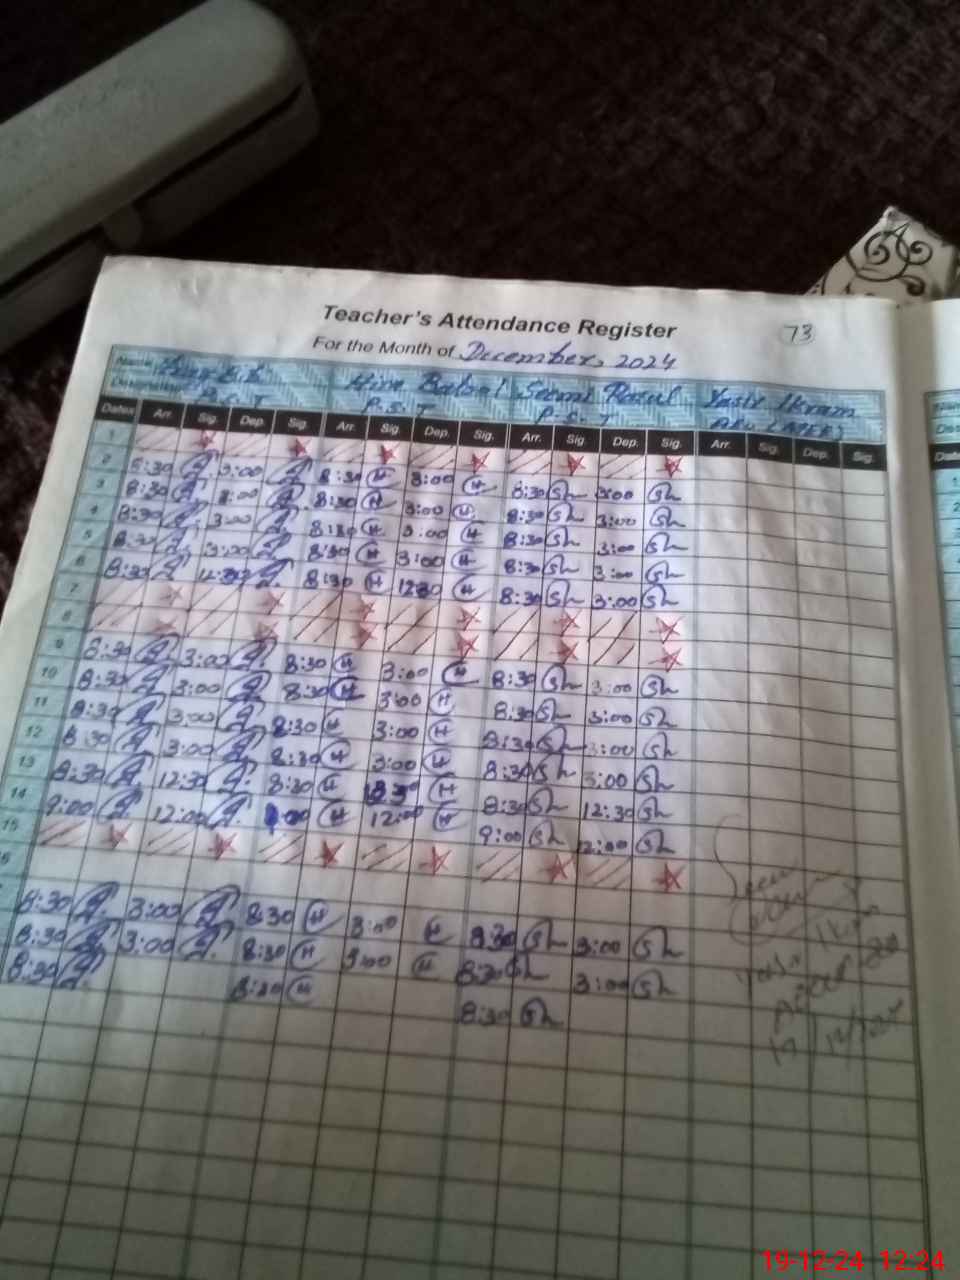 Teacher's Attendance Register
73
For the Month of December, 2024
Name Bibi Hira Batool Seemi Batul Yasir Ikram
Designation P.S.T P.S.T P.S.T
Dates Arr. Sig. Dep. Sig. Arr. Sig. Dep. Sig. Arr. Sig. Dep. Sig. Arr. Sig. Dep. Sig.
1
2 8:30 3:00 8:30 H 3:00 H 8:30 Sh 3:00 Sh
3 8:30 3:00 8:30 H 3:00 H 8:30 Sh 3:00 Sh
4 8:30 3:00 8:30 H 3:00 H 8:30 Sh 3:00 Sh
5 8:30 3:00 8:30 H 3:00 H 8:30 Sh 3:00 Sh
6 8:30 12:30 8:30 H 12:30 H 8:30 Sh 3:00 Sh
7
8
9 8:30 3:00 8:30 H 3:00 H 8:30 Sh 3:00 Sh
10 8:30 3:00 8:30 H 3:00 H 8:30 Sh 3:00 Sh
11 8:30 3:00 8:30 H 3:00 H 8:30 Sh 3:00 Sh
12 8:30 3:00 8:30 H 3:00 H 8:30 Sh 3:00 Sh
13 8:30 12:30 8:30 H 12:30 H 8:30 Sh 12:30 Sh
14 9:00 12:00 9:00 H 12:00 H 9:00 Sh 12:00 Sh
15
8:30 3:00 8:30 H 3:00 H 8:30 Sh 3:00 Sh
8:30 3:00 8:30 H 3:00 H 8:30 Sh 3:00 Sh
8:30 8:30 H 8:30 Sh
Seen
19-12-24 12:24